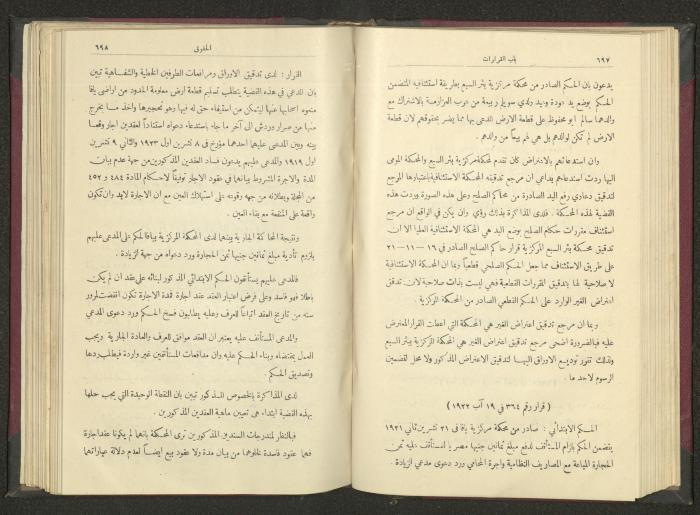 ٦٩٧
باب القرارات
يدعون بان الحكم الصادر من محكمة مركزية بئر السبع بطريقة استئنافية المتضمن
الحكم بوضع يد دودة ونيد ولدي سويلم ربيعة من عرب العزازمة بالاشتراك مع
والدهما سالم ابو محفوظ على قطعة الارض المدعى بها مما يضر بحقوقهم لان قطعة
الارض لم تكن لوالدهم بل هي لهم بيعاً من والدهم .
وان استدعائهم بالاعتراض كان تقدم لمحكمة مركزية بئر السبع والمحكمة المومى
اليها ردت استدعاءهم بداعي ان مرجع تدقيقه المحكمة الاستئنافية باعتبارها المرجع
لتدقيق دعاوي رفع اليد الصادرة من محاكم الصلح وعلى هذه الصورة وردت هذه
القضية لهذه المحكمة . فلدى المذاكرة بذلك رؤي وان يكن في الواقع ان مرجع
استئناف مقررات حكام الصلح بوضع اليد هي المحكمة الاستئنافية العليا الا ان
تدقيق محكمة بئر السبع المركزية قرار حاكم الصلح الصادر في ١٩-١١-٢١
على طريق الاستئناف مما جعل الحكم الصلحي قطعياً وبما ان المحكمة الاستئنافية
لا صلاحية لها بتدقيق المقررات القطعية فهي ليست بذات صلاحية لان تدقق
اعتراض الغير الوارد على الحكم القطعي الصادر من المحكمة المركزية .
وبما ان مرجع تدقيق اعتراض الغير هي المحكمة التي اعطت القرار المعترض
عليه فبالضرورة اضحى مرجع تدقيق اعتراض الغير هي المحكمة المركزية ببئر السبع
ولذلك تقرر توديع الاوراق اليها لتدقيق الاعتراض المذكور ولا محل لتضمين
الرسوم لاحد ما .
( قرار رقم ٣٦٤ في ١٩ آب ١٩٢٢ )
الحكم الابتدائي : صادر من محكمة مركزية يافا في ٢١ تشرين ثاني ١٩٢١
يتضمن الحكم بالزام المستأنف لدفع مبلغ ثمانين جنيها مصريا للمستأنف عليه ثمن
الحجارة المباعة مع المصاريف النظامية واجرة المحامي ورد دعوى مدعي الزيادة .
الحقوق
٦٩٨
القرار : لدى تدقيق الاوراق ومرافعات الطرفين الخطية والشفاهية تبين
بان المدعي في هذه القضية يتطلب تسليم قطعة ارض معلومة الحدود من اراضي يافا
منعوه اصحابها عنها ليتمكن من استيفاء حق له فيها وهو تحجيرها واخذ ما يخرج
منها من صرار ودبش الى آخر ما جاء باستدعاء دعواه استناداً لعقدين اجار وقعا
بينه وبين المدعى عليهم احدهما مؤرخ في ٨ تشرين اول ١٩٢٣ والثاني ٩ تشرين
اول ١٩١٩ والمدعى عليهم يدعون فساد العقدين المذكورين من جهة عدم بيان
المدة والاجرة المشروط بيانهما في عقود الاجار توفيقاً لاحكام المادة ٤٨٤ و ٤٥٢
من المجلة وبطلانه من جهة وقوعه على استهلاك العين مع ان الاجارة لابد وان تكون
واقعة على المنفعة مع بقاء العين .
ونتيجة المحاكمة الجارية وبينها لدى المحكمة المركزية بيافا لمحكم على المدعى عليهم
بلزوم تأدية مبلغ ثمانين جنيها ثمن الحجارة ورد دعواه من جهة الزيادة .
فالمدعى عليهم يستأنفون الحكم الابتدائي المذكور لبنائه على عقد ان لم يكن
باطلا فهو فاسد وعلى فرض اعتبار العقد عقد اجارة فمدة الاجارة تكون انقضت لمرور
سنه من تاريخ العقد اتباعاً للعرف وعليه يطلبون فسخ الحكم ورد دعوى المدعي
والمدعي المستأنف عليه يعتبر ان العقد موافق للعرف والعادة الجارية ويجب
العمل بمقتضاه وبناء الحكم عليه وان مدافعات المستأنفين غير واردة فيطلب ردها
وتصديق الحكم .
لدى المذاكرة بالخصوص المذكور تبين بان النقطة الوحيدة التي يجب حلها
بهذه القضية ابتداء هي تعيين ماهية العقدين المذكورين .
فبالنظر لمندرجات السندين المذكورين ترى المحكمة بانهما لم يكونا عقد اجارة
فهما عقود فاسدة لخلوهما من بيان مدة ولا عقود بيع ايضاً لعدم دلالة عباراتهما